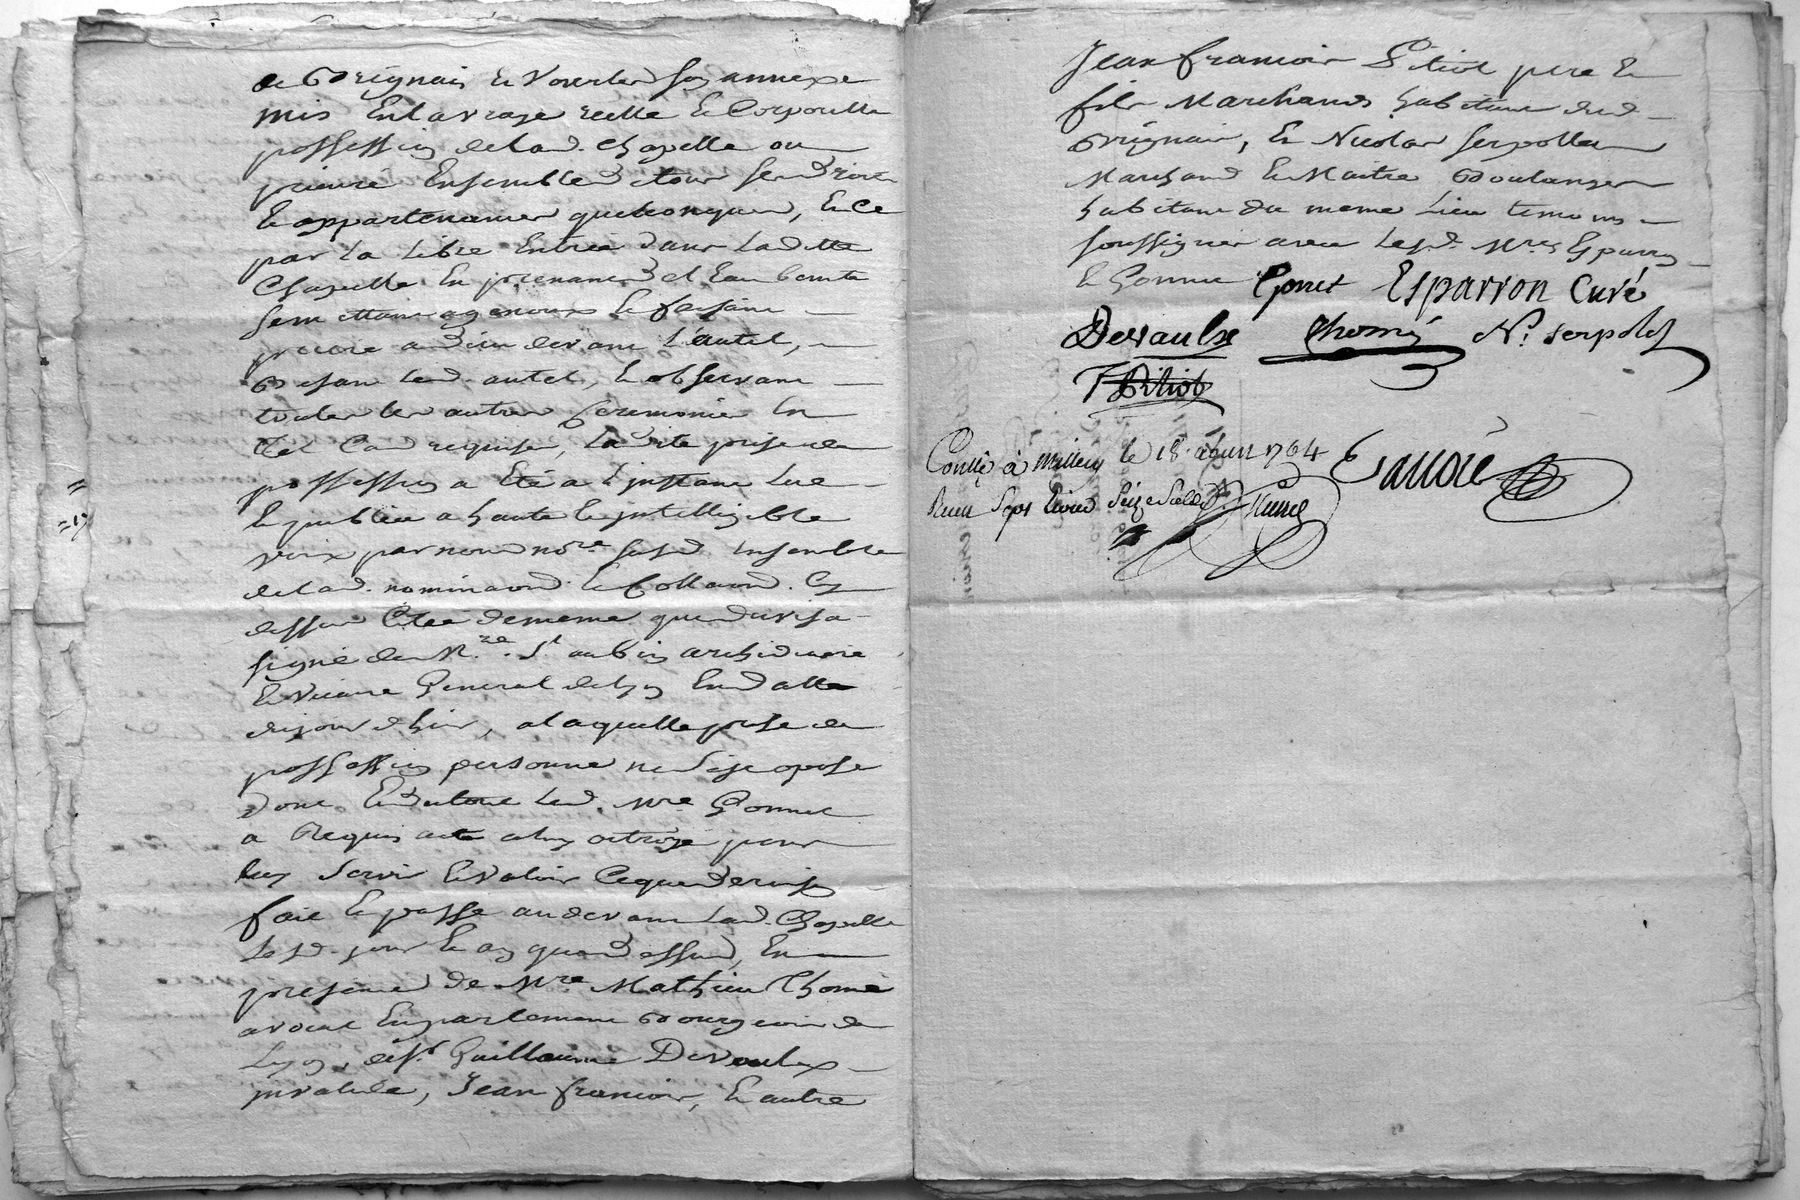 de Brignais et Vourles son annexe
mis en la vraye reelle et Corporelle
possession de lad. Chapelle ou
prieuré Ensemble de tous ses droits
et appartenances quelconques, et ce
par la libre Entrée dans laditte
Chapelle En prenant de l'Eau benite
se mettant a genoux et faisant
priere a dieu devant l'autel,
Baisant led. autel, et observant
toutes les autres Ceremonies en
tel Cas requises, laditte prise de
possession a Eté a l'jnstant lue
et publiée a haute et jntelligible
voix par nous nore susd. Ensemble
de lad. nominaon. et Collaon. cy
dessus Citée de meme que du visa
signé de Mre. St aubin archidiacre
et Vicaire General de Lyon En datte
du jour d'hier, a laquelle prise de
possession personne ne s'est oposé
dont Et du tout led. Mre Gonnet
a Requis acte a luy octroyé pour
luy servir et valoir Ce que de raison
fait et passé au devant lad. Chapelle
les d. jour et an que dessus, En
presence de Mre Mathieu Thomé
avocat En parlement Bourgeois de
Lyon, de sr. Guillaume Devaulx
jnvalide, Jean francois, et autre
Jean francois Pitiot pere et
fils Marchands habitans dud.
Brignais, et Nicolas Serpollet
Marchand et Maitre Boulanger
habitant du meme Lieu temoins
soussignés avec lesd. Mres Esparron
et Gonnet Gonet Esparron Curé
Devaulx Thomé N. serpolet
F Pitiot
Conllé à Millery le 18 avril 1764
Reçu sept livres seize sols